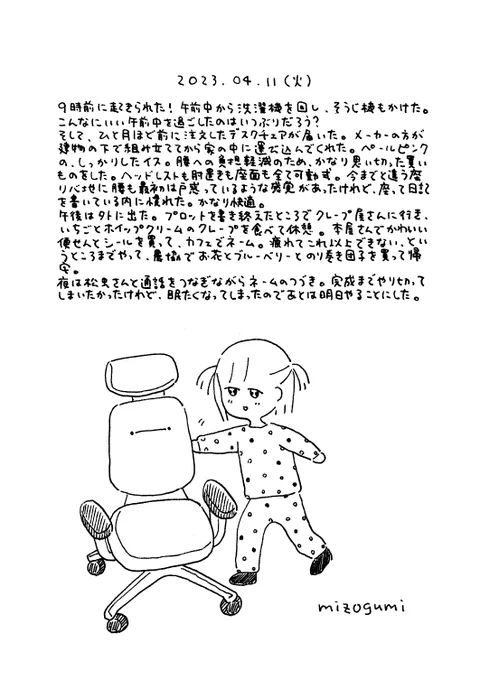 2023.04.11(火)
9時前に起きられた!午前中から洗濯機を回し、そうじ機もかけた。
こんなにいい午前中を過ごしたのはいつぶりだろう?
そして、ひと月ほど前に注文したデスクチェアが届いた。メーカーの方が
建物の下で組み立ててから家の中に運び込んでくれた。ペールピンク
の、しっかりしたイス。腰への負担軽減のため、かなり思い切った買い
ものをした。ヘッドレストも肘置きも座面も全て可動式。今までと違う座
り心地に腰も最初は戸惑っているような感覚があったけれど、座って日記
を書いている内に慣れた。かなり快適。
午後は外に出た。プロットを書き終えたところでクレープ屋さんに行き、
いちごとホイップクリームのクレープを食べて休憩。本屋さんでかわいい
便せんとシールを買って、カフェでネーム。疲れてこれ以上できない、とい
うところまでやって、農協でお花とブルーベリーとのり巻き団子を買って帰
宅。
夜は松虫さんと通話をつなぎながらネームのつづき。完成までやり切って
しまいたかったけれど、眠たくなってしまったのであとは明日やることにした。
mizogumi